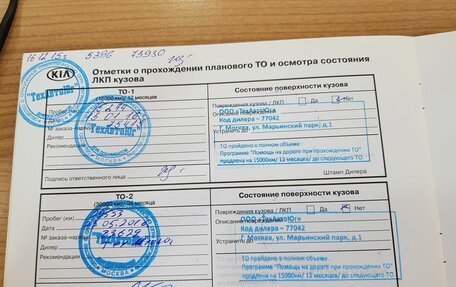 16.12.15г. 5396 73930
KIA
ТехАвтоЮг
Отметки о прохождении планового ТО и осмотра состояния
ЛКП кузова
ТО-1
(15000км/ 12 месяцев
Состояние поверхности кузова
Пробег
Повреждения кузова / ЛКП Да Нет
ООО «ТехАвтоЮг»
Дата
Код дилера – 77042
№ заказа-наряда
Г. Москва, ул. Марьинский парк, д.1
Дилер
ТехАвтоЮг
МОСКВА
Рекомендации
ТО пройдено в полном объеме.
Программе "Помощь на дороге при прохождении ТО"
продлена на 15000км/ 12 месяцев/ до следующего ТО
Подпись ответственного лица
Штамп Дилера
ТО-2
(30000км/ 24 месяцев
Состояние поверхности кузова
Пробег (км)
Повреждения кузова / ЛКП Да Нет
ООО «ТехАвтоЮг»
Дата
Описание
Код дилера – 77042
№ заказа-наряда 23629
Устранить до
Г. Москва, ул. Марьинский парк, д.1
Дилер
Рекомендации
МОСКВА
ТО пройдено в полном объеме.
Программе "Помощь на дороге при прохождении ТО"
продлена на 15000км/ 12 месяцев/ до следующего ТО